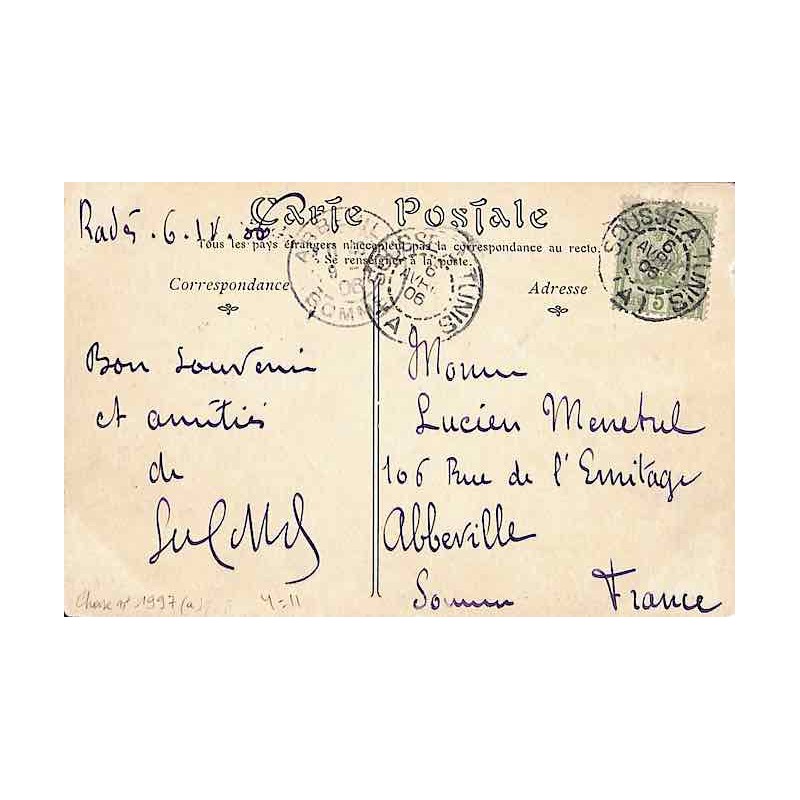 Carte Postale
Radès. 6. IV. 06
Tous les pays étrangers n'acceptent pas la correspondance au recto.
Se renseigner à la poste.
Correspondance
Adresse
SOUSSE A TUNIS
6
AVRIL
06
5
ABBEVILLE
9
06
SOMME
SOUSSE A TUNIS
6
AVRIL
06
Bon souvenir
et amitiés
de
Lucien Menetrel
106 Rue de l'Ermitage
Abbeville
Somme
France
Chase n° 1997 (a)
Y = 11